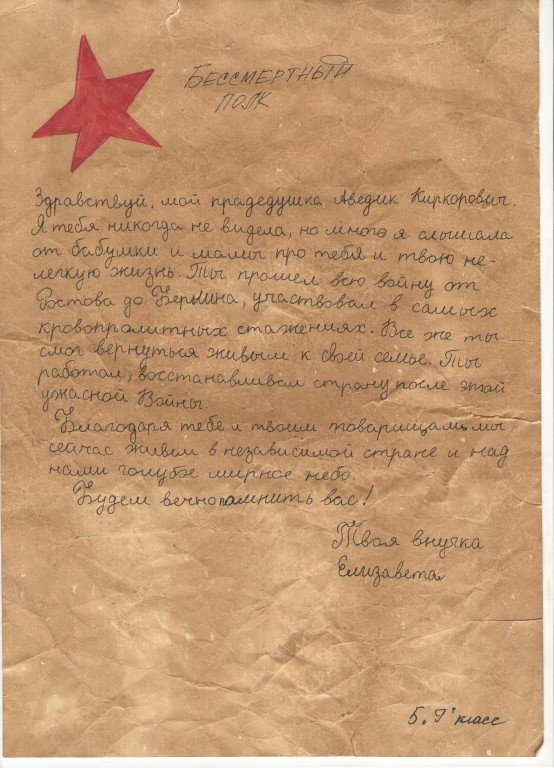 БЕССМЕРТНЫЙ
ПОЛК
Здравствуй, мой прадедушка Аведик Киркорович.
Я тебя никогда не видела, но много я слышала
от бабушки и мамы про тебя и твою не-
легкую жизнь. Ты прошел всю войну от
Ростова до Берлина, участвовал в самых
кровопролитных стажениях. Все же ты
смог вернуться живым к своей семье. Ты
работал, восстанавливал страну после этой
ужасной Войны.
Благодаря тебе и твоим товарищам мы
сейчас живем в независимой стране и над
нами голубое мирное небо.
Будем вечно помнить вас!
Твоя внучка
Елизавета
5 "Г" класс